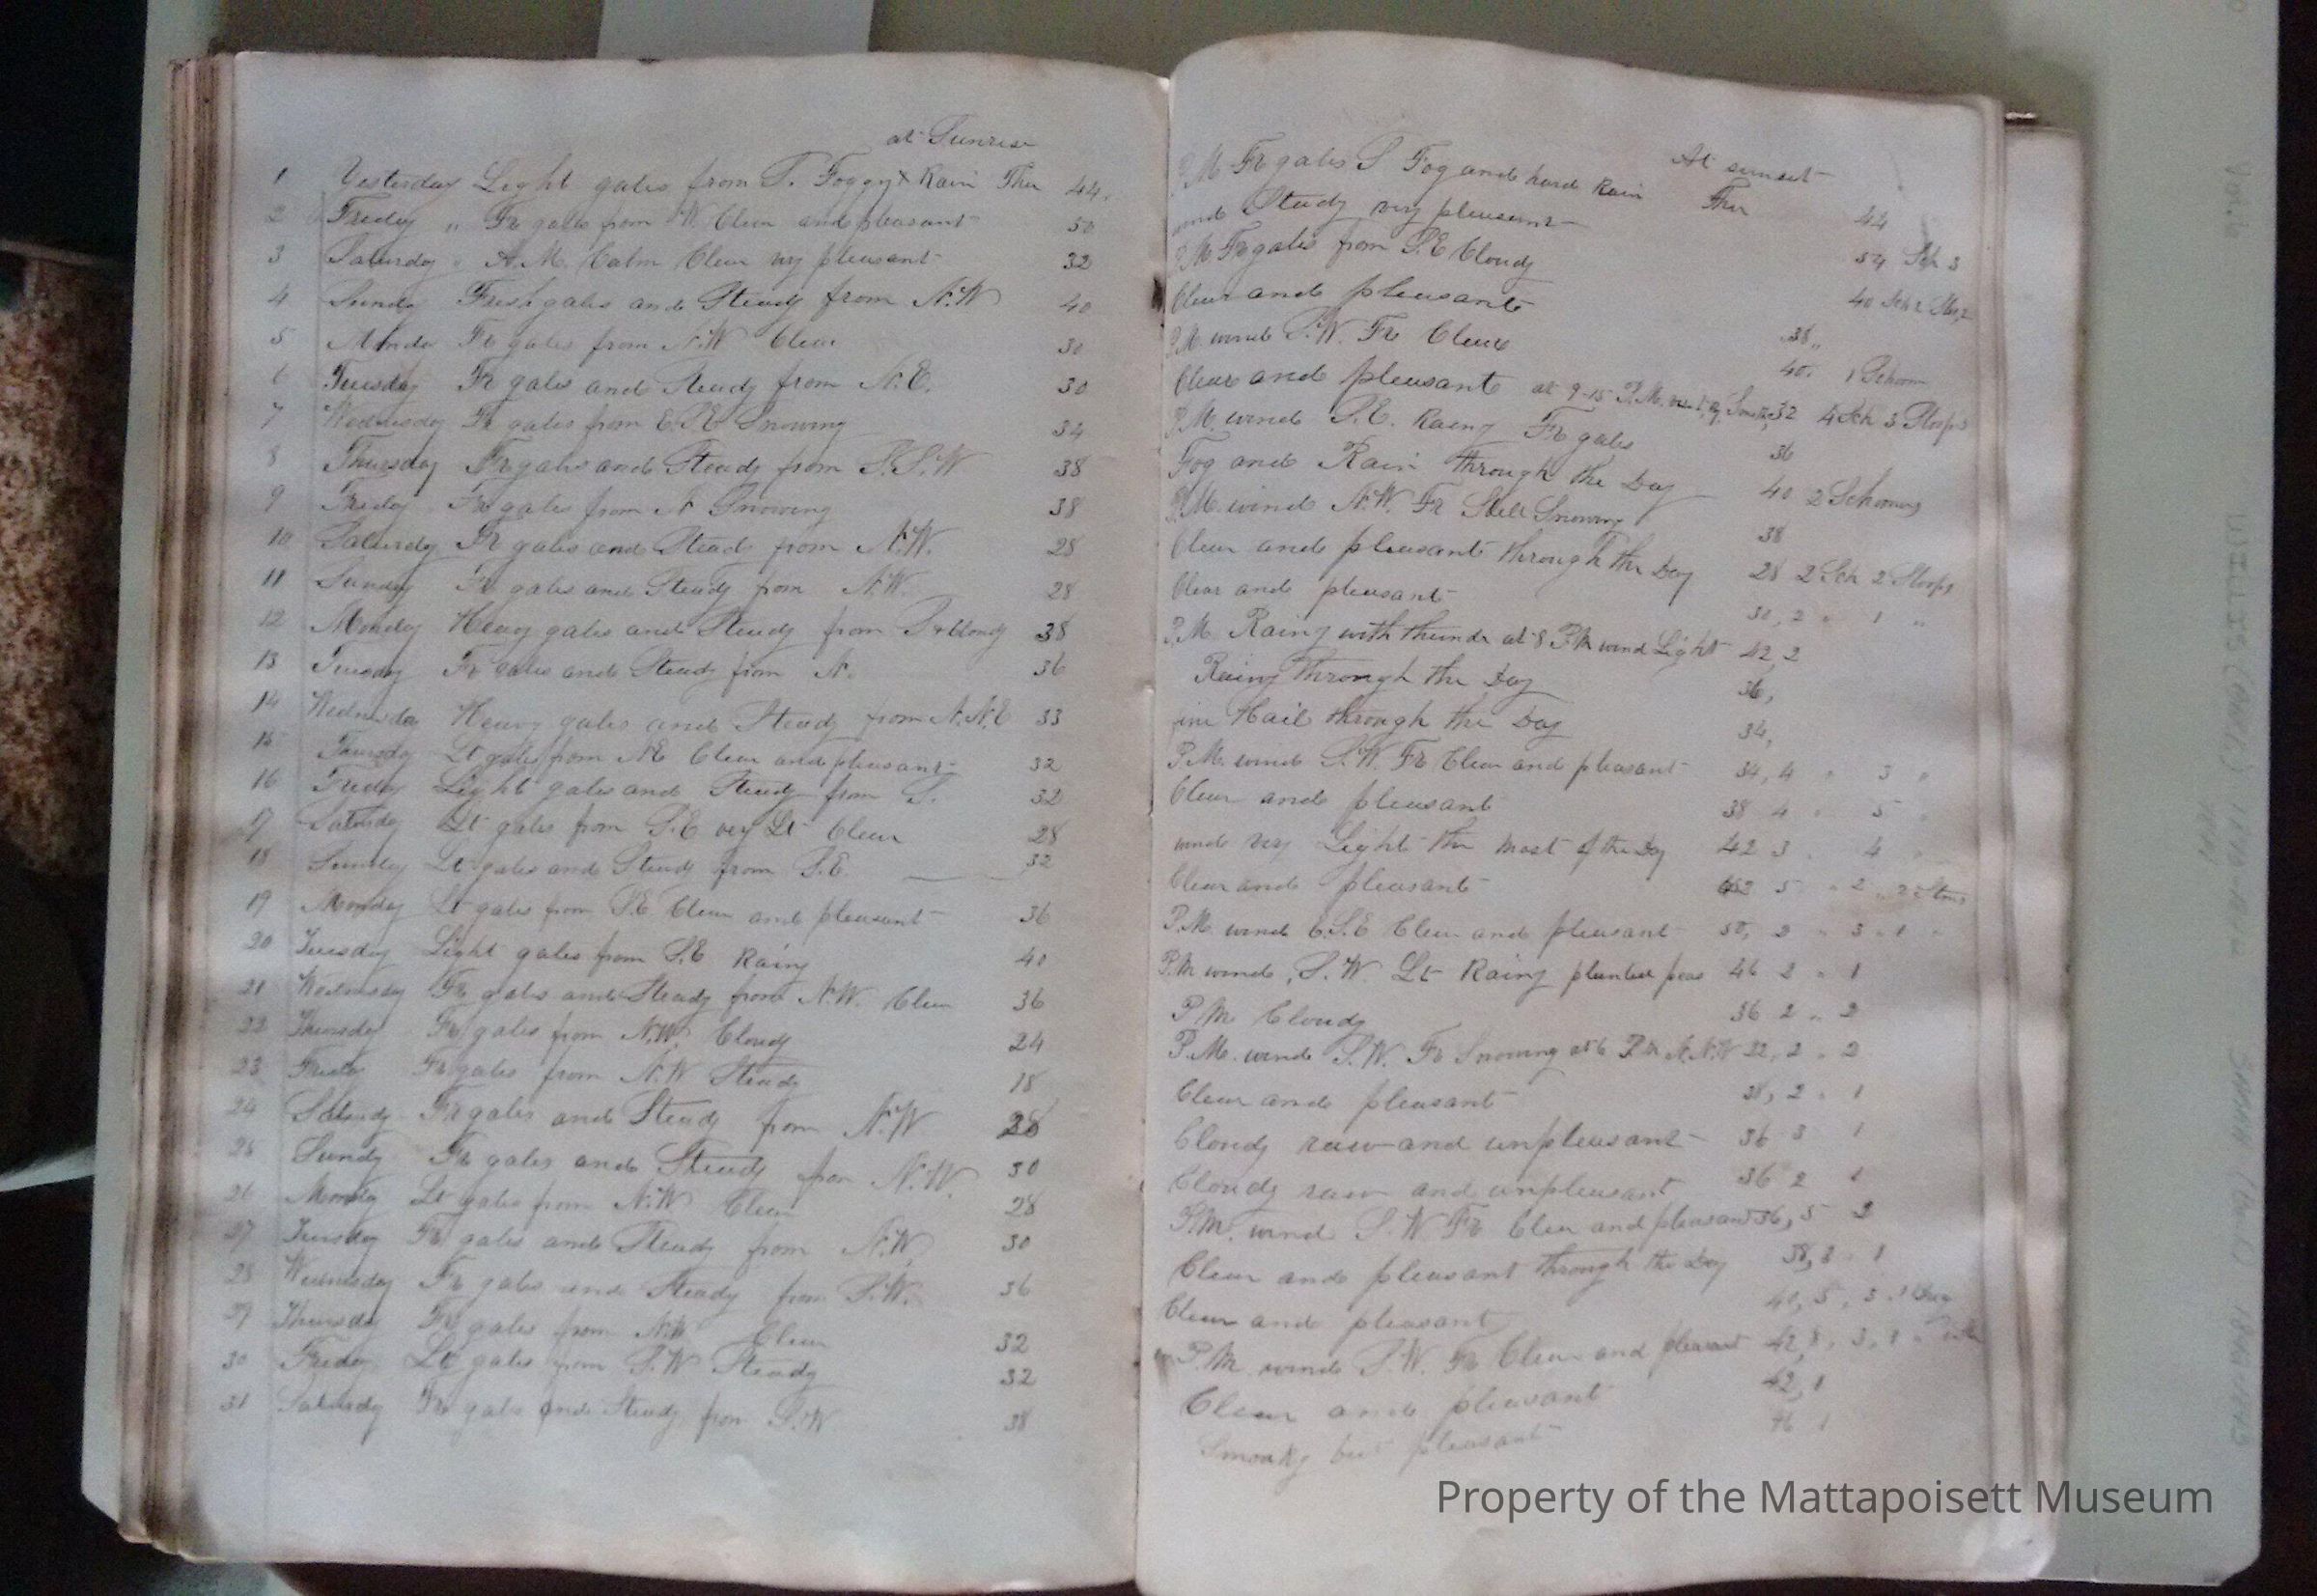 at Sunrise
1 Yesterday Light gales from S. Foggy & Rain Ther 44.
2 Friday " Fr gales from W. Clear and pleasant 50
3 Saturday " A.M. Calm Clear very pleasant 32
4 Sunday Fresh gales and Steady from N.W 40
5 Monday Fr gales from N.W Clear 30
6 Tuesday Fr gales and Steady from N.E. 30
7 Wednesday Fr gales from Snowing 34
8 Thursday Fr gales and Steady from S.S.W 38
9 Friday Fr gales from N Snowing 38
10 Saturday Fr gales and Steady from N.W. 28
11 Sunday Fr gales and Steady from N.W. 28
12 Monday Heavy gales and Steady from S & Cloudy 38
13 Tuesday Fr gales and Steady from N. 36
14 Wednesday Heavy gales and Steady from N.N.E 33
15 Thursday Lt gales from NE Clear and pleasant 32
16 Friday Light gales and Steady from S. 32
17 Saturday Lt gales from S.E very Lt Clear 28
18 Sunday Lt gales and Steady from S.E. 32
19 Monday Lt gales from S.E Clear and pleasant 36
20 Tuesday Light gales from S.E Rainy 40
21 Wednesday Fr gales and Steady from N.W. Clear 36
22 Thursday Fr gales from N.W. Cloudy 24
23 Friday Fr gales from N.W Steady 18
24 Saturdy Fr gales and Steady from N.W 28
25 Sundy Fr gales and Steady from N.W. 30
26 Monday Lt gales from N.W Clear 28
27 Tuesday Fr gales and Steady from N.W. 30
28 Wednesday Fr gales and Steady from S.W. 36
29 Thursday Fr gales from N.W Clear 32
30 Friday Lt gales from S.W Steady 32
31 Saturday Fr gales and Steady from S.W 38
At sunset
P.M Fr gales S Fog and hard Rain Ther 44
wind Steady very pleasant 54 Sch 3
P.M Fr gales from S.E Cloudy 40 Sch
Clear and pleasant 38 "
P.M. wind S.W. Fr Clear 40. 1 Schoon
Clear and pleasant at 9-15 P.M. 32 4 Sch 3 Sloops
P.M. wind S.E. Rainy Fr gales 36
Fog and Rain through the Day 40 2 Schooners
P.M. wind N.W. Fr Still Snowing 38
Clear and pleasant through the Day 28 2 Sch 2 Sloops
Clear and pleasant 30, 2 " 1 "
P.M. Rainy with thunder at 8 P.M wind Light 42, 2
Rainy through the Day 36,
fine Hail through the Day 34,
P.M. wind S.W. Fr Clear and pleasant 34, 4 " 3 "
Clear and pleasant 38 4 " 5 "
wind very Light the most of the Day 42 3 " 4 "
Clear and pleasant 5 " 2 " 2 Stms
P.M. wind E.S.E Clear and pleasant 50, 2 " 3 " 1 "
P.M wind, S.W. Lt Rainy planted peas 46 2 " 1
P.M. Cloudy 36 2 " 2
P.M. wind S.W. Fr Snowing at 6 P.M N.N.W 22, 2 " 2
Clear and pleasant 2 " 1
Cloudy raw and unpleasant 36 3 1
Cloudy raw and unpleasant 36 2 1
P.M. wind S.W Fr Clear and pleasant 36, 5 2
Clear and pleasant through the Day 38, 3 " 1
Clear and pleasant 40, 5, 3
P.M wind S.W. Fr Clear and pleasant 42, 8, 3, 1
Clear and pleasant 42, 1
Smoaky but pleasant 46 1
Property of the Mattapoisett Museum